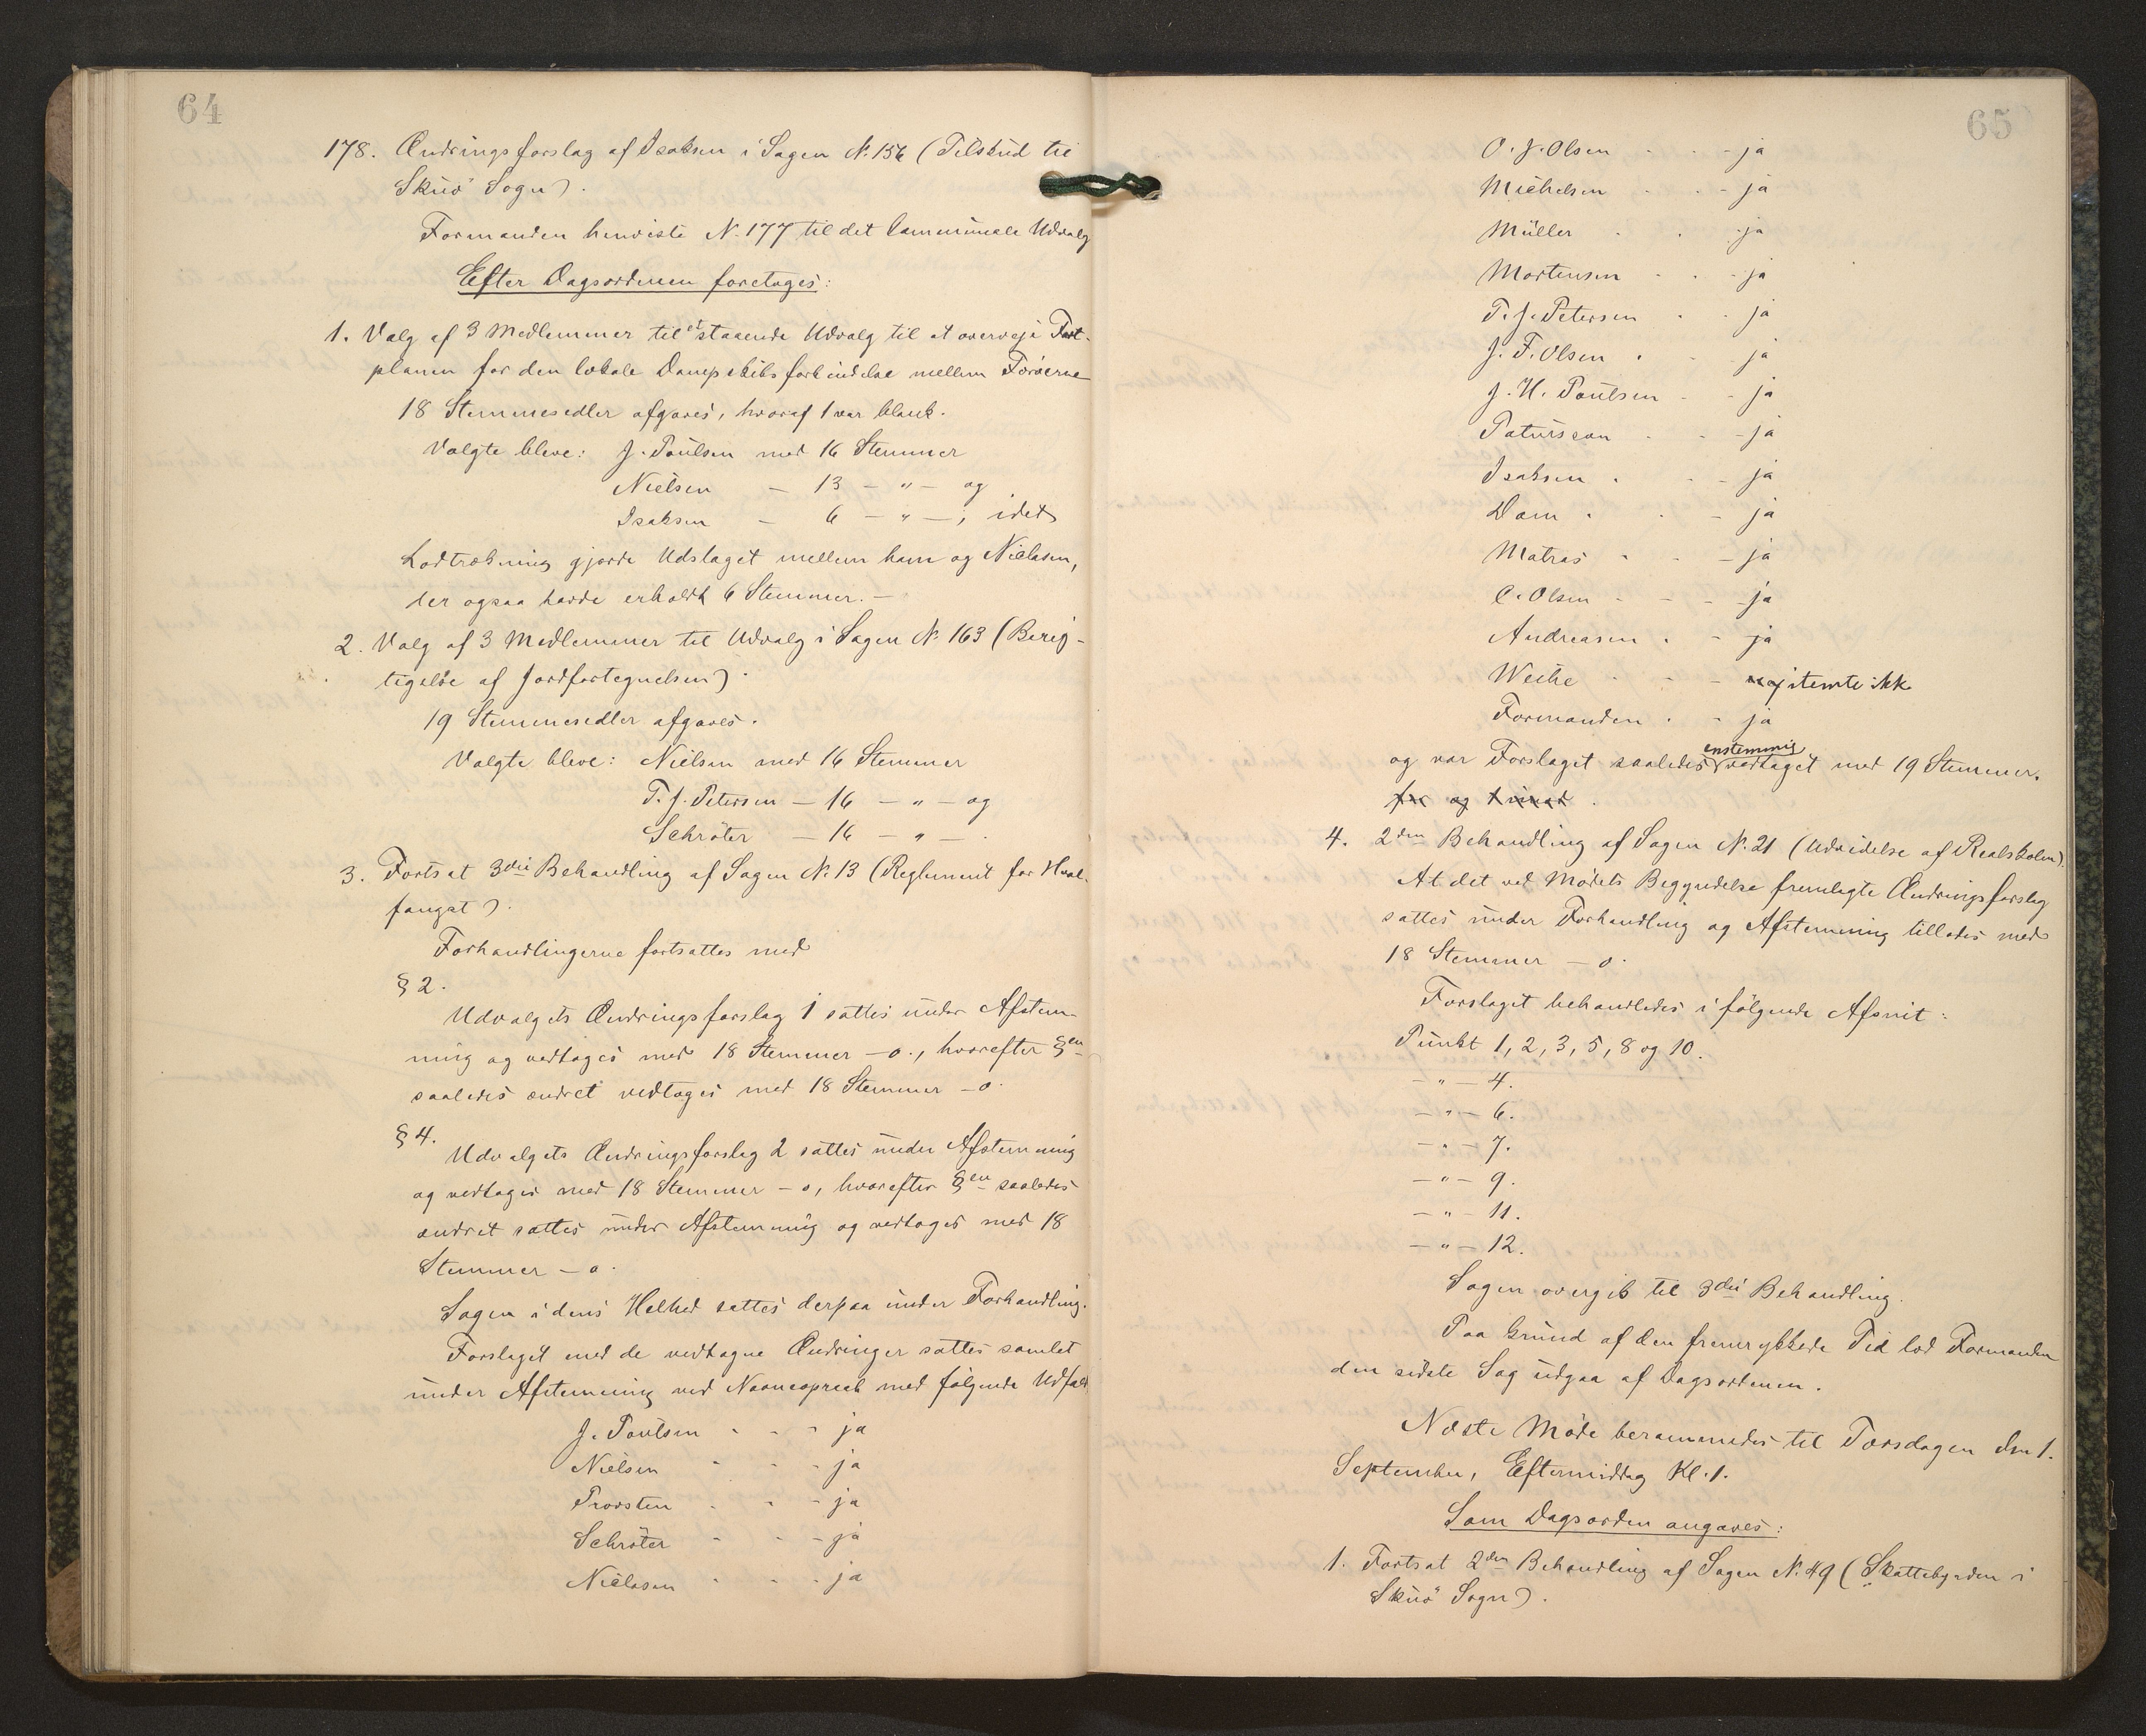 64
178. Ændringsforslag af Isaksen i Sagen N. 156 (Tilskud til
Skuö Sogn).
Formanden henviste N. 177 til det communale Udvalg
Efter Dagsordenen foretoges:
1. Valg af 3 Medlemmer til et staaende Udvalg til at overveje Fart-
planen for den lokale Dampskibsforbindelse mellem Færöerne
18 Stemmesedler afgaves, hvoraf 1 var blank.
Valgte bleve: J. Poulsen med 16 Stemmer
Nielsen — 13 — " — og
Isaksen — 6 — " —, idet
Lodtrækning gjorde Udslaget mellem ham og Niclasen,
der ogsaa havde erholdt 6 Stemmer. —
2. Valg af 3 Medlemmer til Udvalg i Sagen N. 163 (Berig-
tigelse af Jordfortegnelsen).
19 Stemmesedler afgaves.
Valgte bleve: Nielsen med 16 Stemmer
T. J. Petersen — 16 — " — og
Schröter — 16 — " — .
3. Fortsat 3die Behandling af Sagen N. 13 (Reglement for Hval-
fangst).
Forhandlingerne fortsattes med
§ 2.
Udvalgets Ændringsforslag 1 sattes under Afstem-
ning og vedtoges med 18 Stemmer — o., hvorefter §en
saaledes ændret vedtoges med 18 Stemmer — o.
§ 4.
Udvalgets Ændringsforslag 2 sattes under Afstemning
og vedtoges med 18 Stemmer — o, hvorefter §en saaledes
ændret sattes under Afstemning og vedtoges med 18
Stemmer — o.
Sagen i dens Helhed sattes derpaa under Forhandling.
Forslaget med de vedtagne Ændringer sattes samlet
under Afstemning ved Navneopraab med følgende Udfald
J. Poulsen - - - ja
Nielsen - - - ja
Provsten - - - ja
Schröter - - - ja
Niclasen - - - ja
65
O. J. Olsen - - - ja
Michelsen - - - ja
Müller - - - ja
Mortensen - - - ja
T. J. Petersen - - ja
J. F. Olsen - - ja
J. H. Poulsen - - ja
Patursson - - - ja
Isaksen - - - ja
Dam - - - ja
Matras - - - ja
C. Olsen - - - ja
Andreasen - - ja
Weihe - - - stemte ikke
Formanden - - ja
og var Forslaget saaledes enstemmig vedtaget med 19 Stemmer.
for og 1 imod .
4. 2den Behandling af Sagen N. 21 (Udvidelse af Realskolen).
At det ved Mødets Begyndelse fremlagte Ændringsforslag
sattes under Forhandling og Afstemning tillodes med
18 Stemmer — o.
Forslaget behandledes i følgende Afsnit:
Punkt 1, 2, 3, 5, 8 og 10.
— " — 4.
— " — 6.
— " — 7.
— " — 9.
— " — 11.
— " — 12.
Sagen overgik til 3die Behandling.
Paa Grund af den fremrykkede Tid lod Formanden
den sidste Sag udgaa af Dagsordenen.
Næste Møde berammedes til Torsdagen den 1.
September, Eftermiddag Kl. 1.
Som Dagsorden angaves:
1. Fortsat 2den Behandling af Sagen N. 49 (Skattebyrden i
Skuö Sogn).